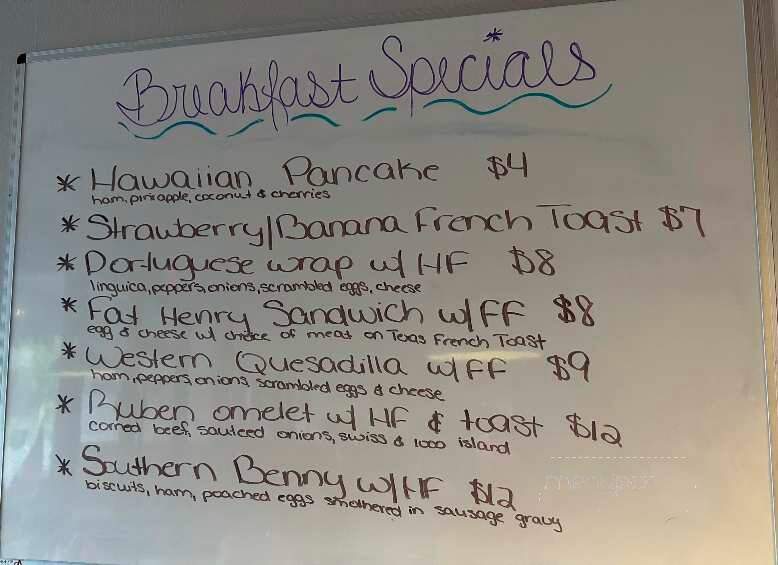 Breakfast Specials
* Hawaiian Pancake $4
ham, pineapple, coconut & cherries
* Strawberry/Banana French Toast $7
* Portuguese wrap w/ HF $8
linguica, peppers, onions, scrambled eggs, cheese
* Fat Henry Sandwich w/ FF $8
egg & cheese w/ choice of meat on Texas French Toast
* Western Quesadilla w/ FF $9
ham, peppers, onions, scrambled eggs & cheese
* Ruben omelet w/ HF & toast $12
corned beef, sauteed onions, swiss & 1000 island
* Southern Benny w/ HF $12
biscuits, ham, poached eggs smothered in sausage gravy